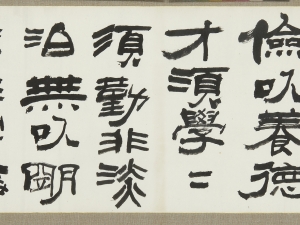 儉以養德
才須學二
須勤非淡
泊無以明